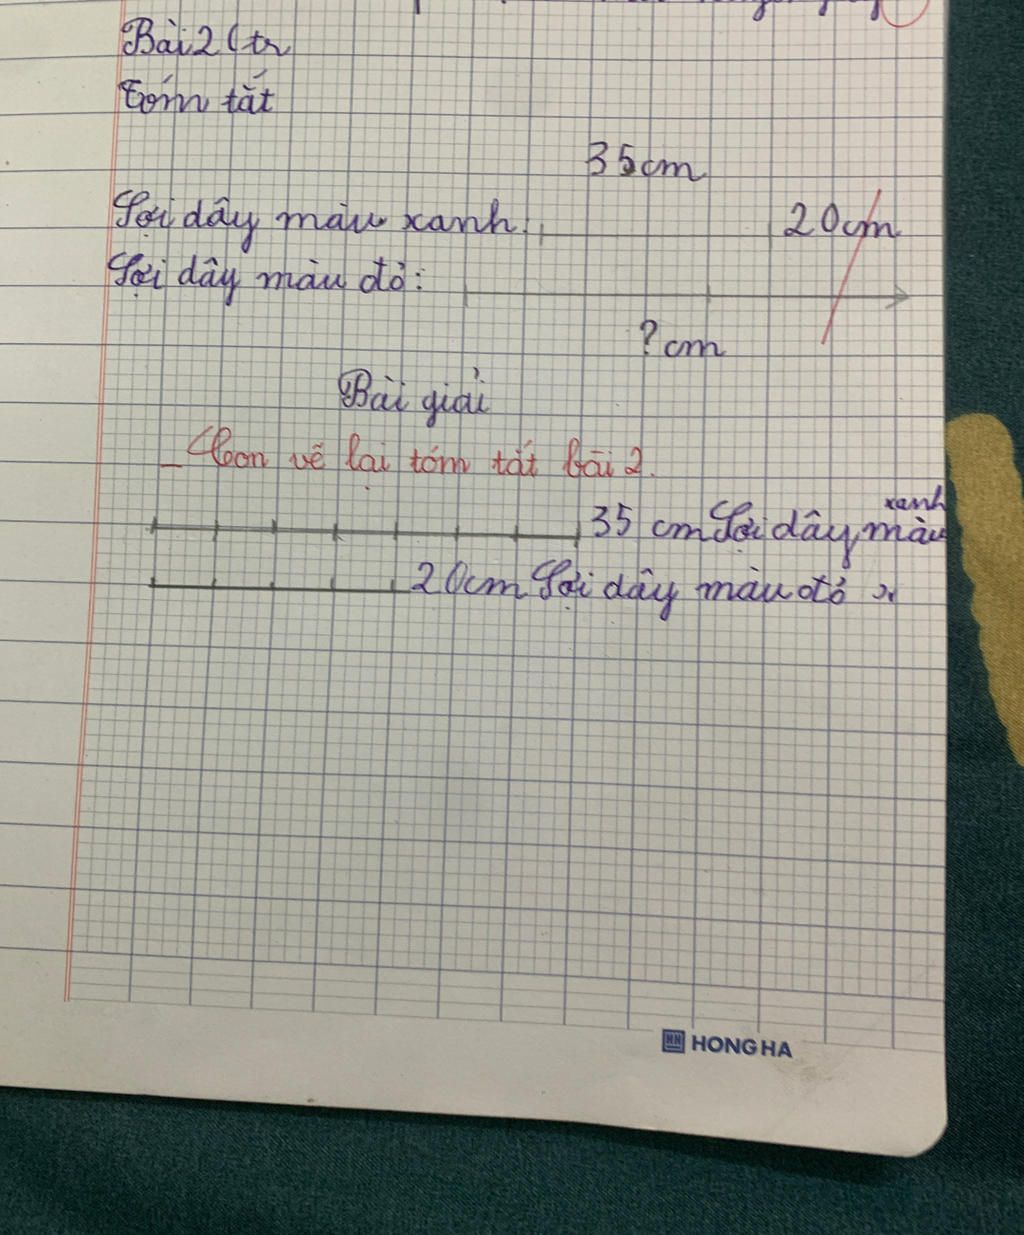 Bài 2 (tr
Tóm tắt
35cm
Sợi dây màu xanh:
20cm
Sợi dây màu đỏ:
?cm
Bài giải
_ Con vẽ lại tóm tắt bài 2.
xanh
35 cm Sợi dây màu
20cm Sợi dây màu đỏ
HONG HA